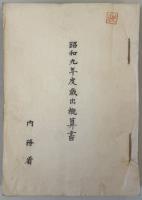 昭和九年度歳出概算書
内務省